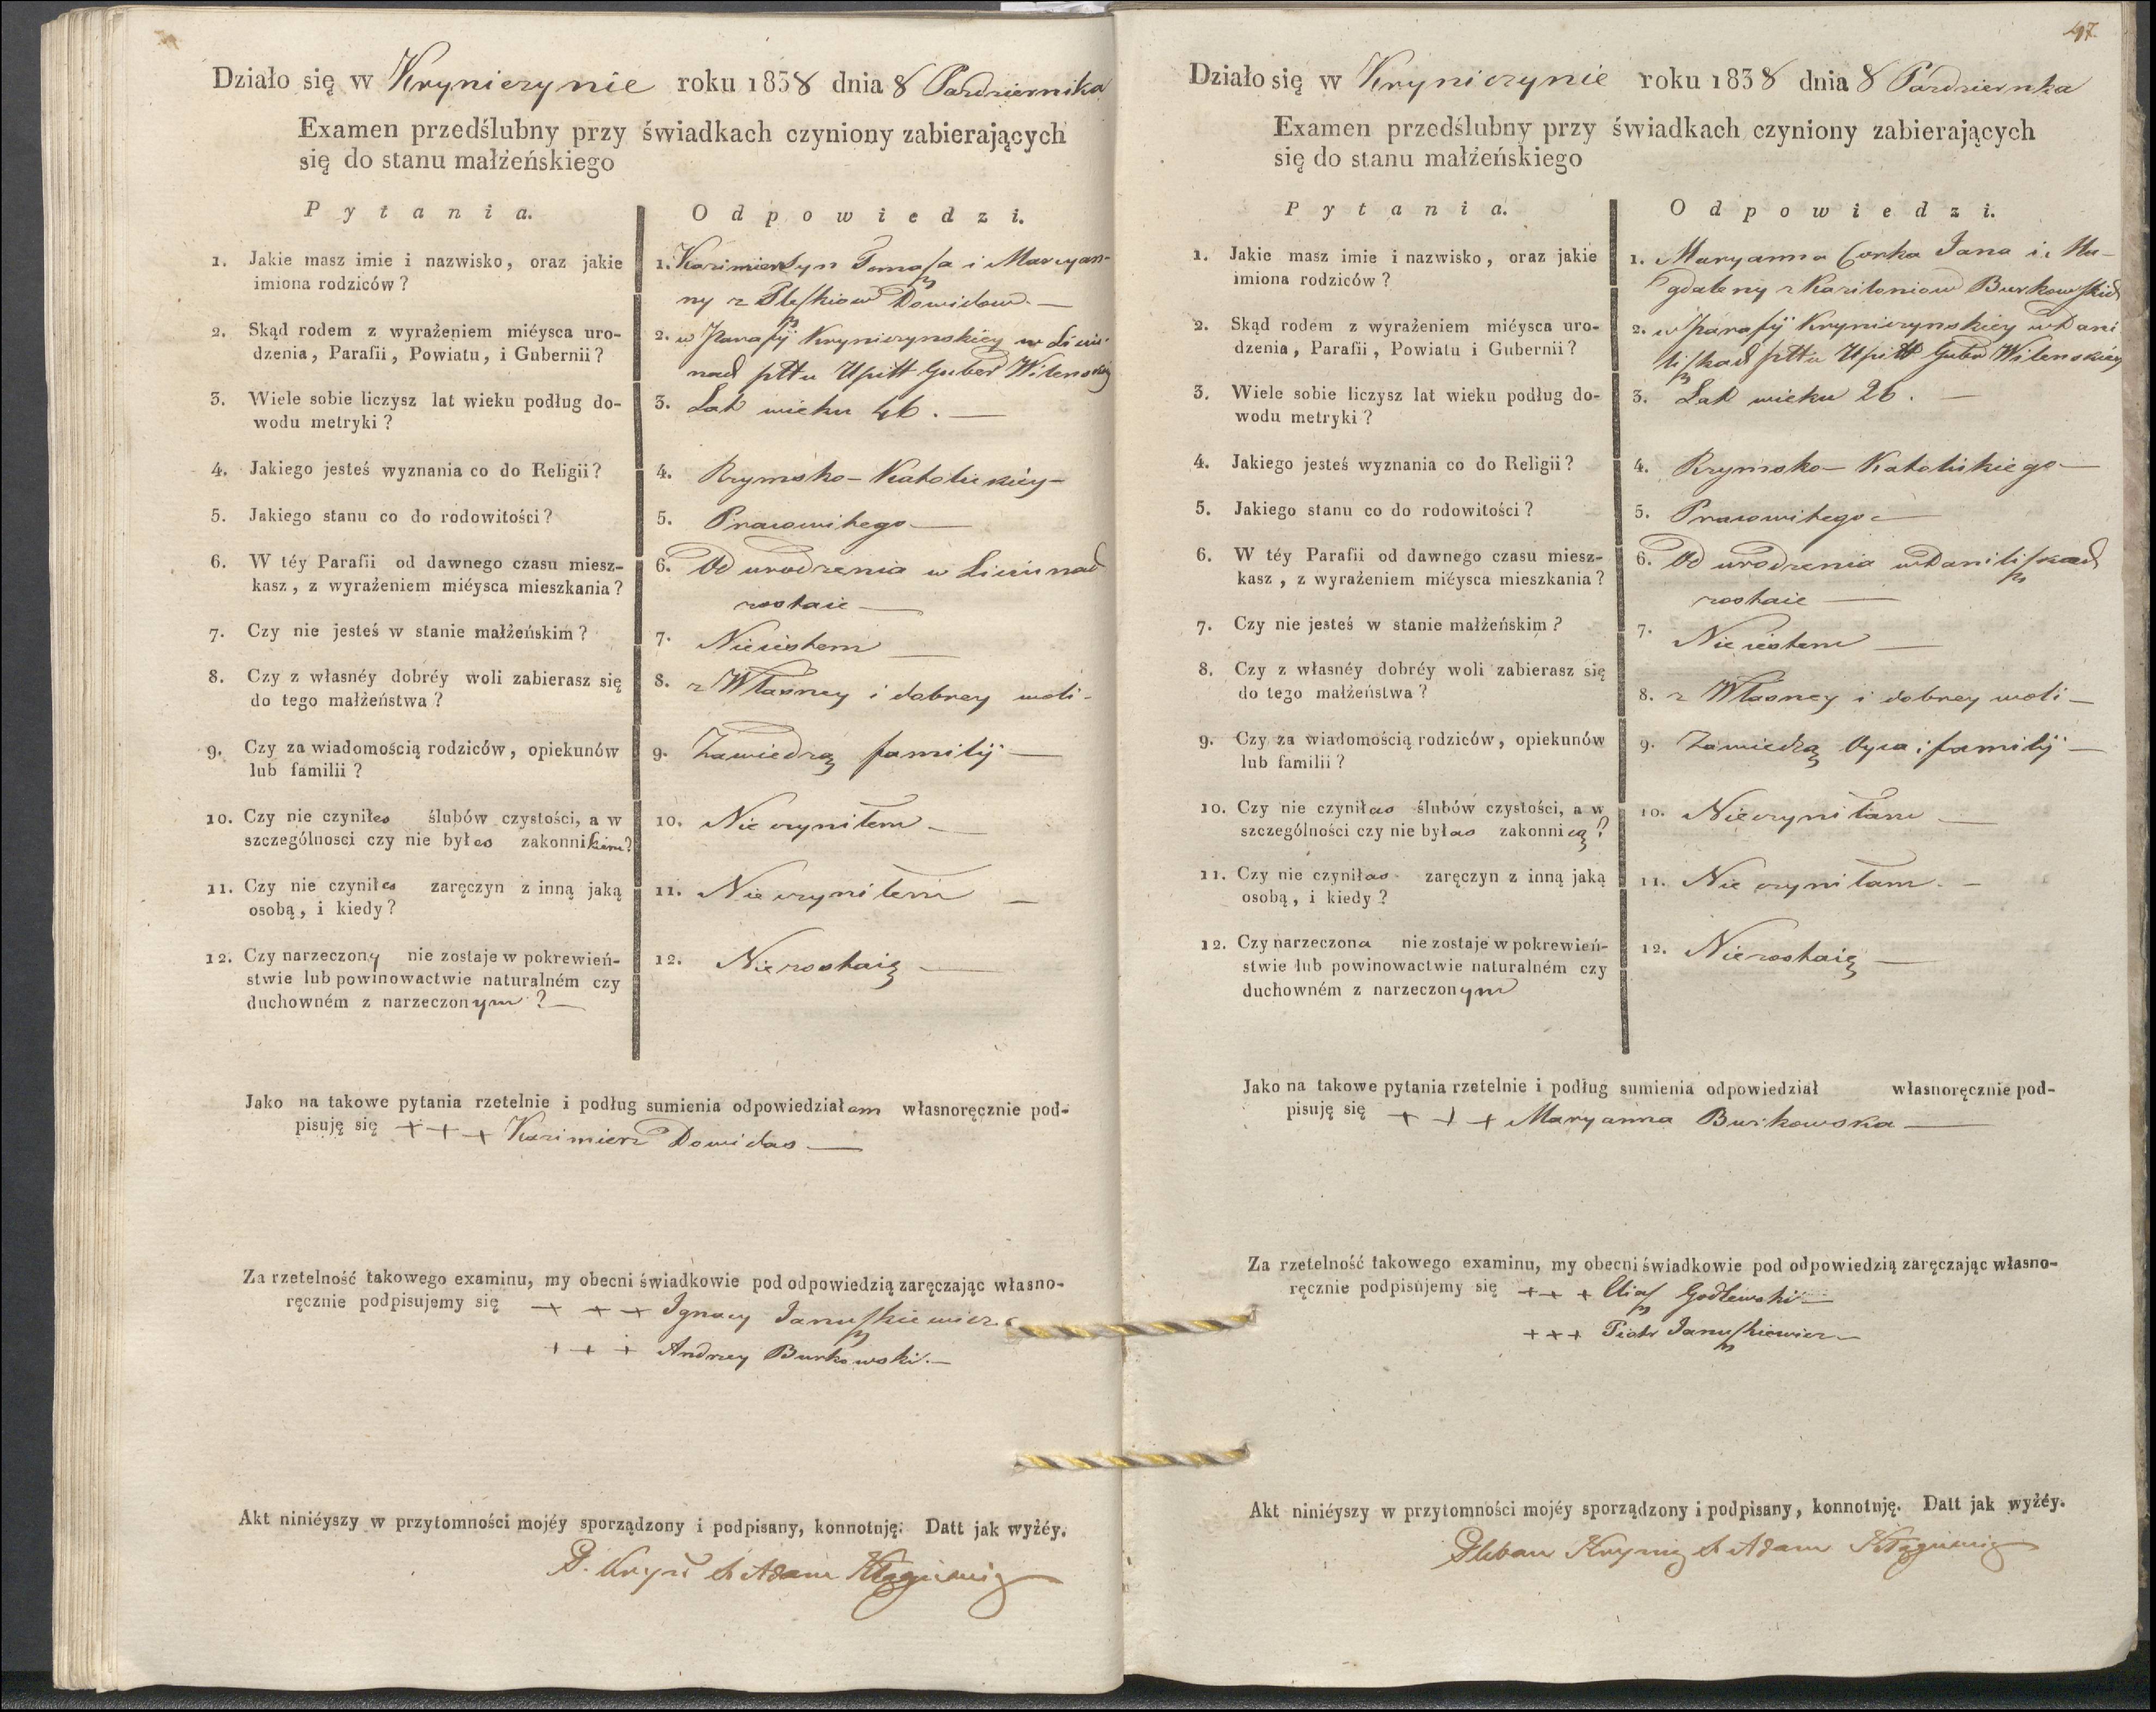 Działo się w Kryniczynie roku 1838 dnia 8 Pazdziernika
Examen przedślubny przy świadkach czyniony zabierających
się do stanu małżeńskiego
Pytania. Odpowiedzi.
1. Jakie masz imie i nazwisko, oraz jakie
imiona rodziców?
1. Kazimierz Syn Tomasza i Maryan-
ny z Pleszkiow Dowidow. —
2. Skąd rodem z wyrażeniem miéysca uro-
dzenia, Parafii, Powiatu, i Gubernii?
2. w Parafij Kryniczynskiey w
nach pttu Upitt Guber Wilenskiey
3. Wiele sobie liczysz lat wieku podług do-
wodu metryki?
3. Lat wieku 46. —
4. Jakiego jesteś wyznania co do Religii?
4. Rzymsko-Katolickiéy —
5. Jakiego stanu co do rodowitości?
5. Pracowitego —
6. W téy Parafii od dawnego czasu miesz-
kasz, z wyrażeniem miéysca mieszkania?
6. Od urodzenia w
zostaie —
7. Czy nie jesteś w stanie małżeńskim?
7. Nieiestem —
8. Czy z własnéy dobréy woli zabierasz się
do tego małżeństwa?
8. z Własney i dobrey woli -
9. Czy za wiadomością rodziców, opiekunów
lub familii?
9. Zawiedzą familij —
10. Czy nie czyniłes ślubów czystości, a w
szczególnosci czy nie byłes zakonnikiem?
10. Nie czyniłem —
11. Czy nie czyniłes zaręczyn z inną jaką
osobą, i kiedy?
11. Nie czyniłem —
12. Czy narzeczony nie zostaje w pokrewień-
stwie lub powinowactwie naturalném czy
duchowném z narzeczonym? —
12. Niezostaię —
Jako na takowe pytania rzetelnie i podług sumienia odpowiedziałem własnoręcznie pod-
pisuję się + + + Kazimierz Dowidas —
Za rzetelność takowego examinu, my obecni świadkowie pod odpowiedzią zaręczając własno-
ręcznie podpisujemy się + + + Ignacy Januszkiewicz
+ + + Andrzey Burkowski. —
Akt niniéyszy w przytomności mojéy sporządzony i podpisany, konnotuję. Datt jak wyżéy.
P. Kryn X Adam
47.
Działo się w Kryniczynie roku 1838 dnia 8 Pazdziernka
Examen przedślubny przy świadkach czyniony zabierających
się do stanu małżeńskiego
Pytania. Odpowiedzi.
1. Jakie masz imie i nazwisko, oraz jakie
imiona rodziców?
1. Maryanna Corka Jana i Ma-
gdaleny z Karitoniow Burkowskich
2. Skąd rodem z wyrażeniem miéysca uro-
dzenia, Parafii, Powiatu i Gubernii?
2. w Parafij Kryniczynskiey w Dani
liszkach pttu Upitt Guber Wilenskiey
3. Wiele sobie liczysz lat wieku podług do-
wodu metryki?
3. Lat wieku 26. —
4. Jakiego jesteś wyznania co do Religii?
4. Rzymsko-Katolickiego —
5. Jakiego stanu co do rodowitości?
5. Pracowitego —
6. W téy Parafii od dawnego czasu miesz-
kasz, z wyrażeniem miéysca mieszkania?
6. Od urodzenia w Daniliszkach
zostaie —
7. Czy nie jesteś w stanie małżeńskim?
7. Nie iestem —
8. Czy z własnéy dobréy woli zabierasz się
do tego małżeństwa?
8. z Własney i dobrey woli —
9. Czy za wiadomością rodziców, opiekunów
lub familii?
9. Zawiedzą Oyca i familij —
10. Czy nie czyniłas ślubów czystości, a w
szczególności czy nie byłas zakonnicą?
10. Nieczyniłam —
11. Czy nie czyniłas zaręczyn z inną jaką
osobą, i kiedy?
11. Nie czyniłam. —
12. Czy narzeczona nie zostaje w pokrewień-
stwie lub powinowactwie naturalném czy
duchowném z narzeczonym
12. Niezostaię —
Jako na takowe pytania rzetelnie i podług sumienia odpowiedział własnoręcznie pod-
pisuję się + + + Maryanna Burkowska —
Za rzetelność takowego examinu, my obecni świadkowie pod odpowiedzią zaręczając własno-
ręcznie podpisujemy się + + + Eliasz Godlewski —
+ + + Piotr Januszkiewicz —
Akt niniéyszy w przytomności mojéy sporządzony i podpisany, konnotuję. Datt jak wyżéy.
Pleban Krynicz X Adam